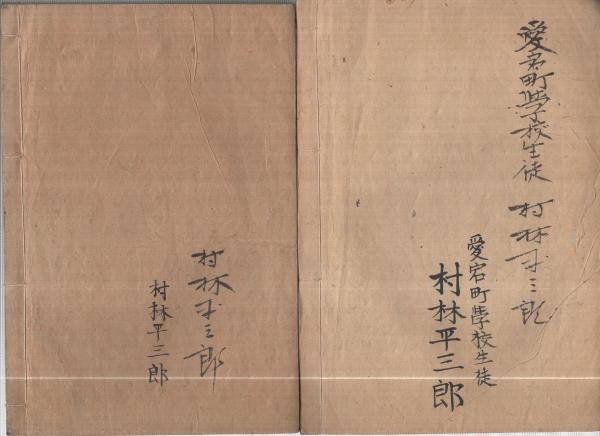 愛宕町學校生徒 村林平三郎
愛宕町學校生徒
村林平三郎
村林平三郎
村林平三郎